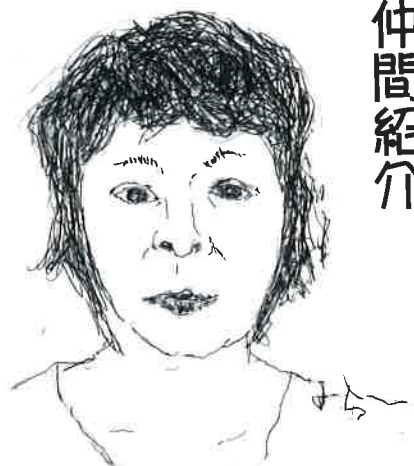 仲間紹介